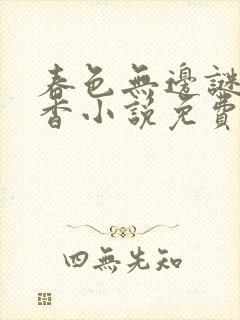 春色無邊謎
香小說免費
四無先知